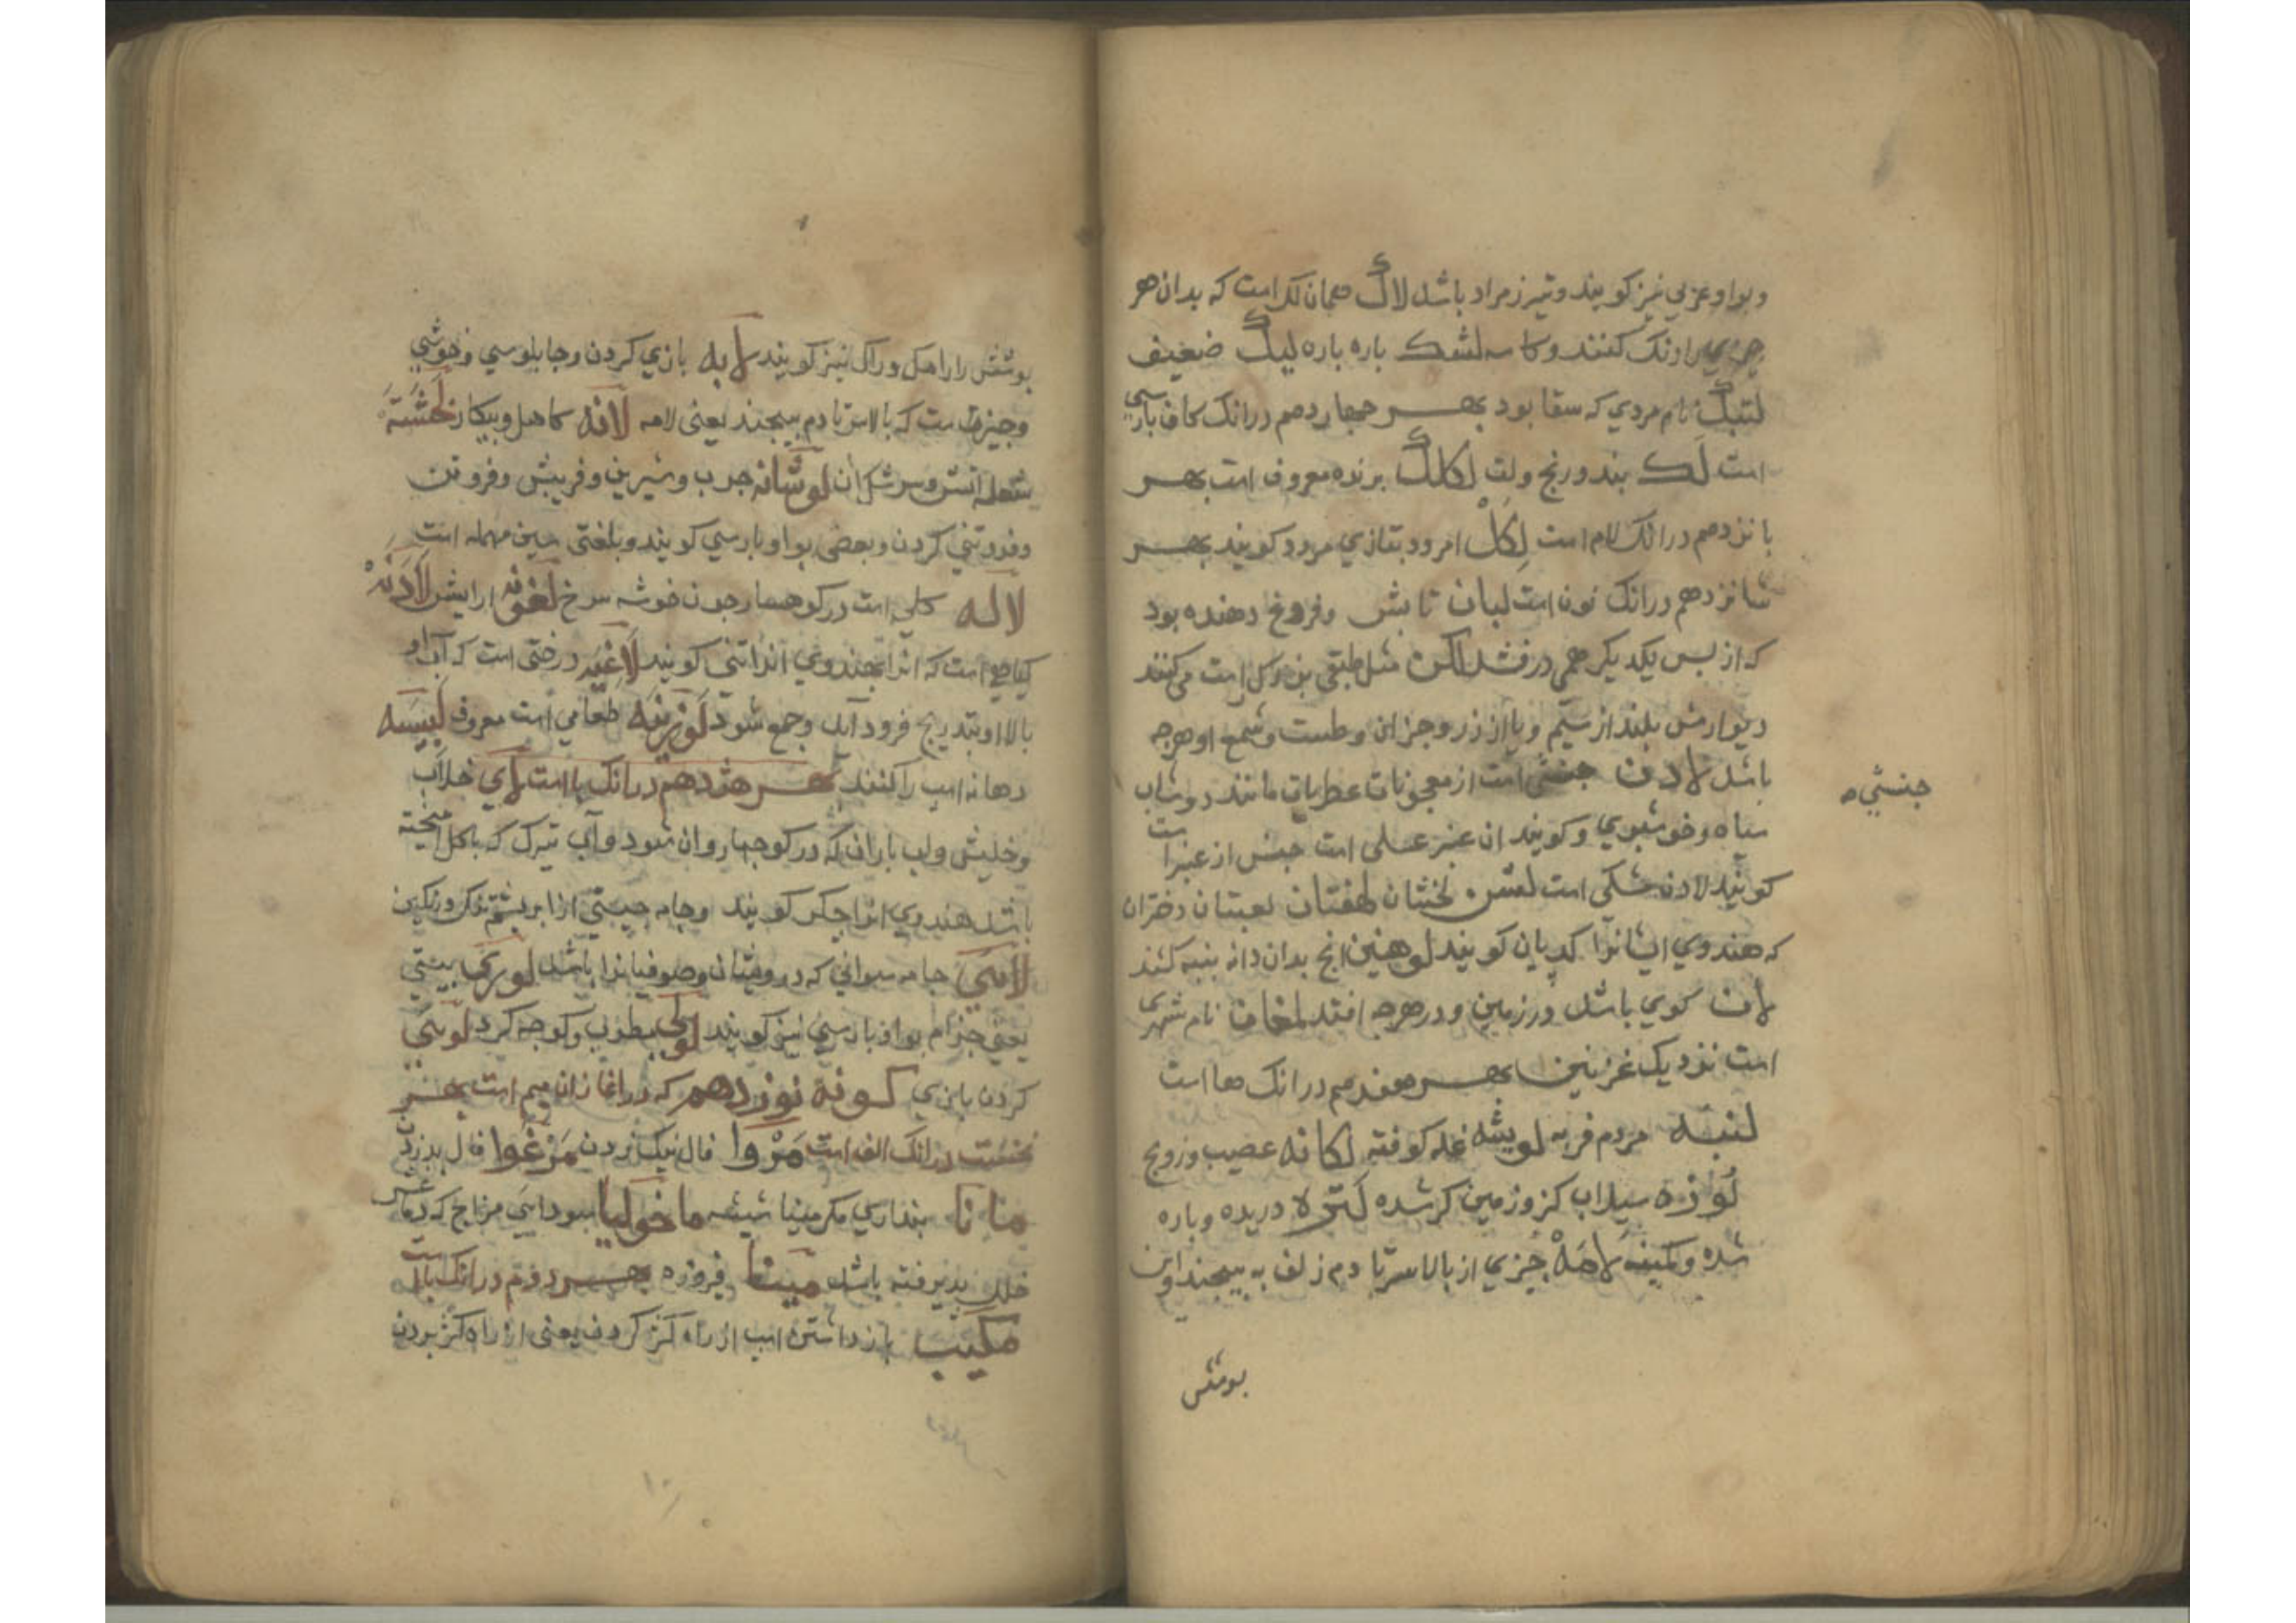 وبواو عربی نیز کویند و تیز مراد باشد لاک همان لک است که بدان هر
چیزی را رنک کنند و کاسه لشک باره باره لیک ضعیف
لنبک نام مردی که سقا بود بهر چهاردهم درانک کاف بارسی
است لک بند و رنج ولت لکلک برنده معروف است بهر
بانزدهم درانک لام است لکل امرود بتازی کویند بهر
شانزدهم درانک نون است لبان تابش و فروغ دهنده بود
که از بس یکدیکر همی درفشد لکن مثل طبقی بزرک است می کنند
دیوارش بلند از سیم و یا از زر و جز ان و طست و شمع او هرچه
باشد لادن جنشی است از معجونات عطریات مانند دوشاب
سیاه و خوشبوی و کویند ان عنبر عسلی است جنس از عنبر است
جنشی
کویند لادن مشکی است لخشان لهفتان لعبتان دختران
که هندوی ایشانرا کدیان کویند لوهنین انچ بدان دانه بنبه کنند
لان کوی باشد در زمین و در هرچه افتد لمغان نام شهری
است نزدیک غزنین بهر هفدهم درانک ها است
لنبه مردم فربه لویشه غله کوفته لکانه عصیب و زویج
لوزه سیلاب کز و زمین کر شده لتره دریده و باره
شده و کمینه لامه چیزی از بالا سر تا دم زلف به بیجند و این
بوشش
بوشش را راهک و راک نیز کویند لابه بازی کردن و جابلوسی و خوشی
و چیزی است که بالا سر تا دم بیجند یعنی لامه لانه کاهل و بیکار لخشته
شعله اتش و سرشک ان لوشانه جرب و شیرین و فریبش و فروتن
و فروتنی کردن و بعضی بواو بارسی کویند و بلغتی سین مهمله است
لاله کلی است در کوهسار چون خوشه سرخ لغونه ارایش لادنه
کیاهی است که انرا هندوی کویند لاغیه درختی است که آب او
بالا او بتدریج فرود آید و جمع شود لوزینه طعامی است معروف لبیسه
دهانه اسب را کنند بهر هژدهم درانک یا است لای خلاب
و خلیش و لب باران که در کوجها روان شود و آب تیره که با کل امیخته
باشد هندوی انرا چکر کویند و جامه چینی از ابریشم تنک و رنکین
لاسی جامه سوانی که درویشان و صوفیانرا باشد لوری بیستی
یعنی جذام بواو بارسی نیز کویند لولی مطرب و کوجه کرد لوسی
کردن بازی کونه نوزدهم که در اغاز ان میم است بهر
نخست درانک الف است مروا فال نیک زدن مرغوا فال بد زدن
مانا بنداری مکر مینا شیشه ماخولیا سودایی مزاج که دماغش
خلل بذیرفته باشد مینا فیروزه بهر دوم درانک با است
مکیب بازداشتن اسب از راه کژ کردن یعنی از راه کژ بردن